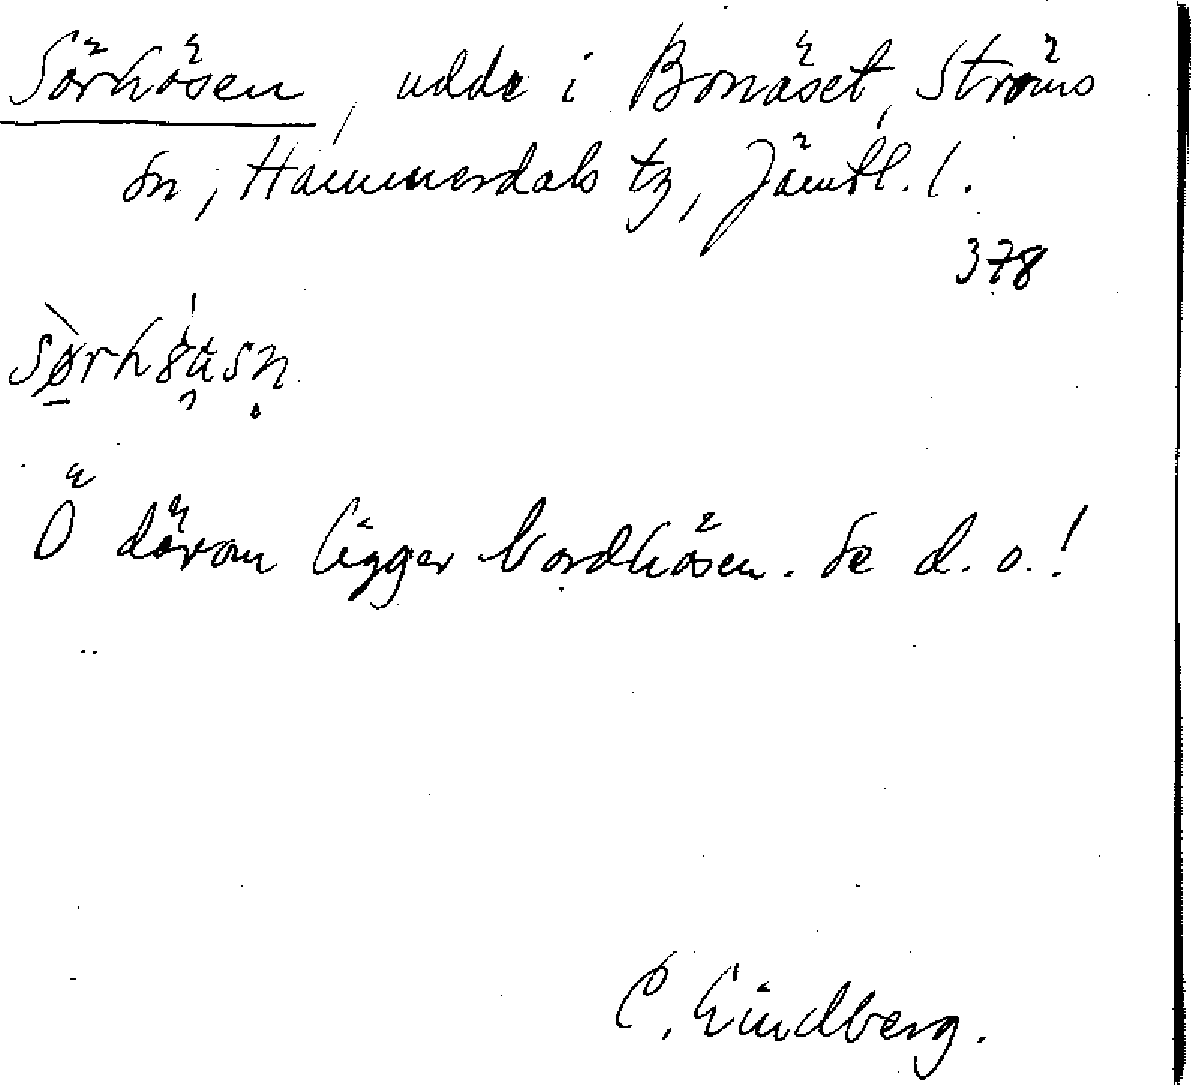 Sörhösen, udde i Bonäset, Ströms
sn, Hammerdals tg, Jämtl. l.
378
Ö därom ligger Nordhösen. Se d. o.!
C. Lindberg.